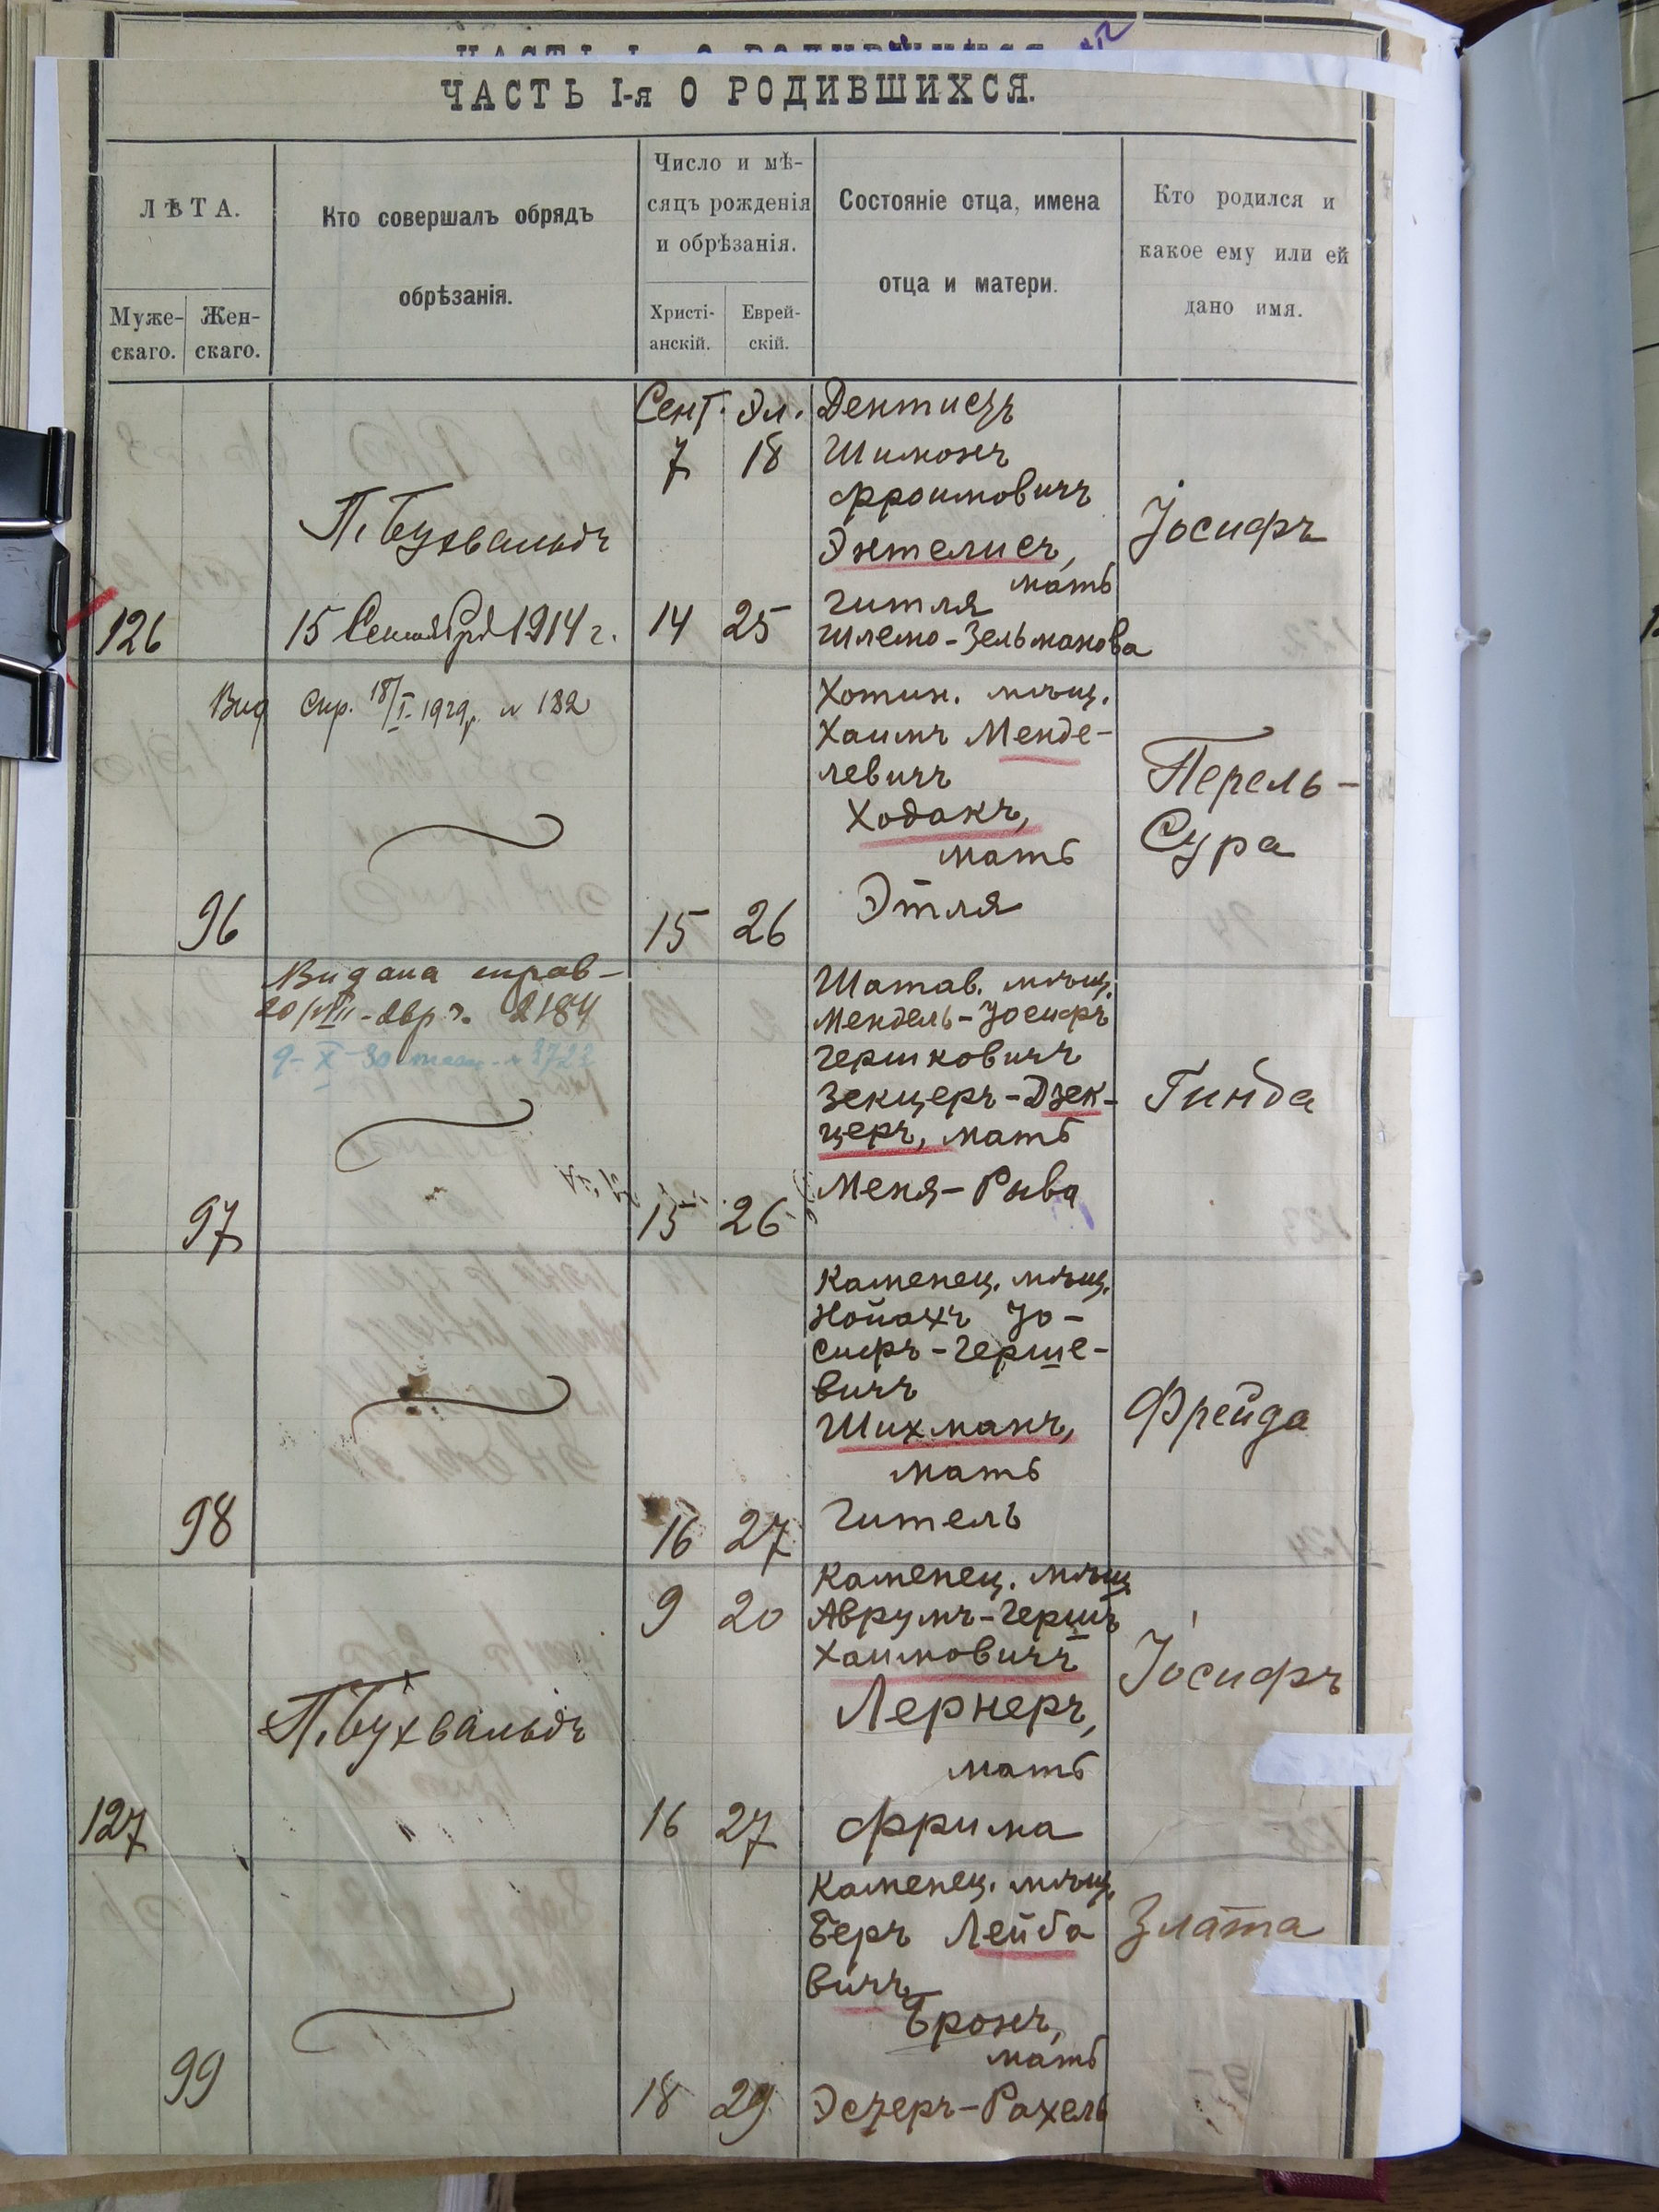 ЧАСТЬ I-я О РОДИВШИХСЯ.
ЛѢТА.
Муже-
скаго.
Жен-
скаго.
Кто совершалъ обрядъ
обрѣзанія.
Число и мѣ-
сяцъ рожденія
и обрѣзанія.
Христі-
анскій.
Еврей-
скій.
Состояніе отца, имена
отца и матери.
Кто родился и
какое ему или ей
дано имя.
Сент. Эл. Дентистъ
7 18 Шимонъ
Фроимовичъ
П. Бухвальдъ Энтелисъ, Іосифъ
мать
Гитля
126 15 Сентября 1914 г. 14 25 Шлемо-Зельманова
Вид Спр. 18/I 1929 р. № 182
Хотин. мѣщ.
Хаимъ Менде-
левичъ Перель-
Ходакъ, Сура
мать
Этля
96 15 26
Видана справ-
2184
Шатав. мѣщ.
Мендель-Іосифъ
Гершковичъ
Зекцеръ-Дзек- Гинда
церъ, мать
Меня-Рива
97 15 26
Каменец. мѣщ.
Нойахъ Іо-
сифъ-Герше-
вичъ
Шихманъ, Фрейда
мать
Гитель
98 16 27
Каменец. мѣщ
9 20 Аврумъ-Гершъ
Хаимовичъ Іосифъ
П. Бухвальдъ Лернеръ,
мать
127 16 27 Фрима
Каменец. мѣщ.
Беръ Лейба Злата
вичъ
Бронъ,
мать
99 18 29 Эстеръ-Рахель